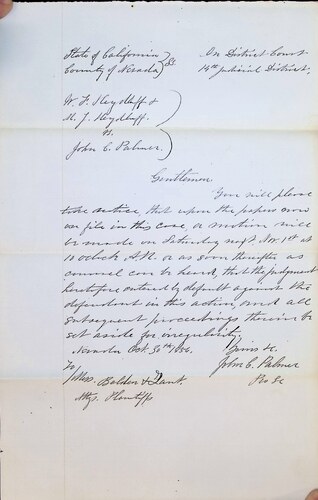 State of California } SS In District Court
County of Nevada 14th Judicial District,
W. F. Heydlaff &
M. J. Heydlaff.
vs.
John C. Palmer.
Gentlemen
You will please
take notice, that upon the papers now
on file in this case, a motion will
be made on Saturday next, Nov. 1st at
10 oclock A.M. or as soon thereafter as
counsel can be heard, that the judgment
heretofore entered by default against the
defendant in this action, and all
subsequent proceedings therein be
set aside for irregularity.
Nevada Oct. 30th 1856. Yours &c
John C. Palmer
To Pro Se
Mess. Belden &
Attys. Plantiffs